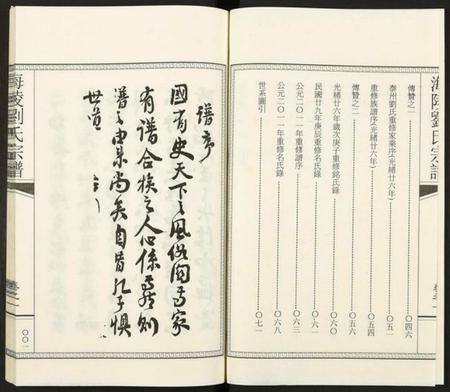 海陵劉氏宗譜
傳贊之一……〇四六
傳贊之二
泰州劉氏重修家乘序(光緒廿六年)
重修族譜序(光緒廿六年)……〇五四
光緒廿六年歲次庚子重修銘氏錄……〇五六
民國廿九年庚辰重修名氏錄……〇六〇
公元二〇一一年重修譜序……〇六一
公元二〇一一年重修名氏錄……〇六三
世系圖引……〇六八
〇七一
譜序
國有史天下之風俗因焉家
有譜合族之人心係焉則
譜之由來尚矣自昔孔子懼
世道
海陵劉氏宗譜
卷之一
〇〇一